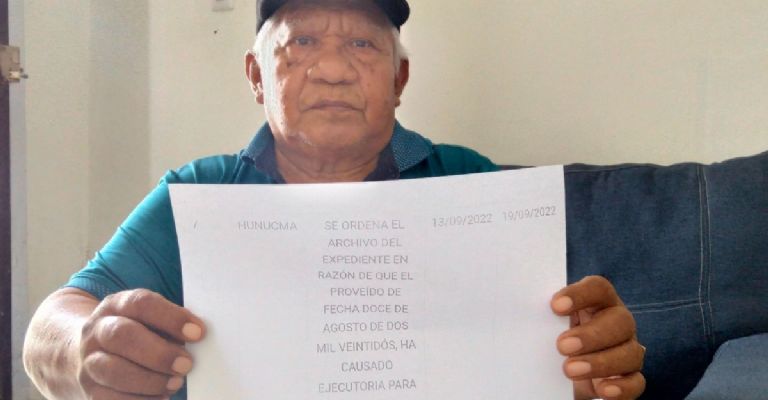 / HUNUCMA SE ORDENA EL 13/09/2022 19/09/2022
ARCHIVO DEL
EXPEDIENTE EN
RAZÓN DE QUE EL
PROVEÍDO DE
FECHA DOCE DE
AGOSTO DE DOS
MIL VEINTIDÓS, HA
CAUSADO
EJECUTORIA PARA